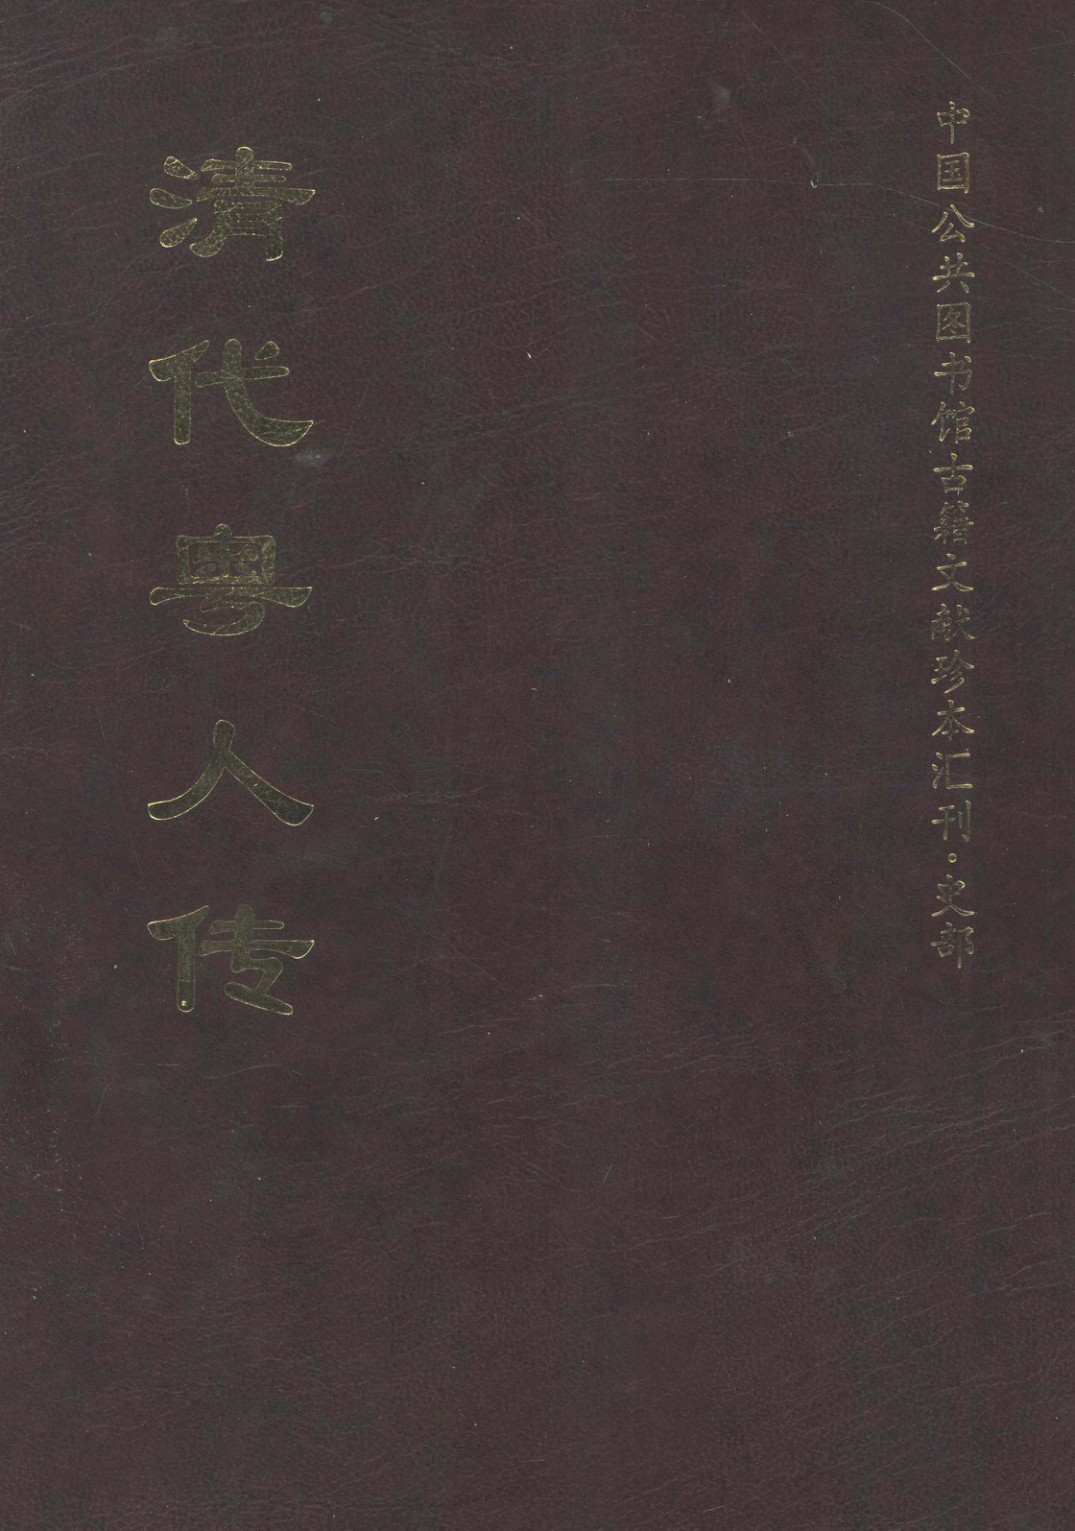 中国公共图书馆古籍文献珍本汇刊·史部
清代粤人传